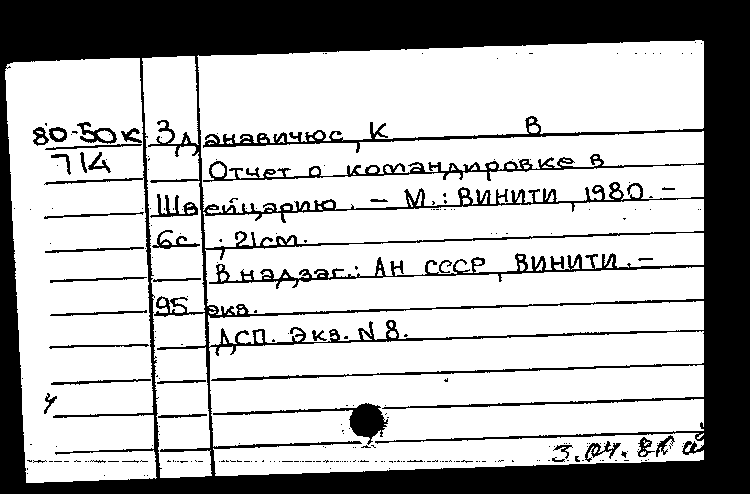 80-50к Зданавичюс, К В
714 Отчет о командировке в
Швейцарию. - М.: ВИНИТИ, 1980. -
6с ; 21см.
В надзаг.: АН СССР, ВИНИТИ. -
95 экз.
ДСП. Экз. N 8.
3.04.80